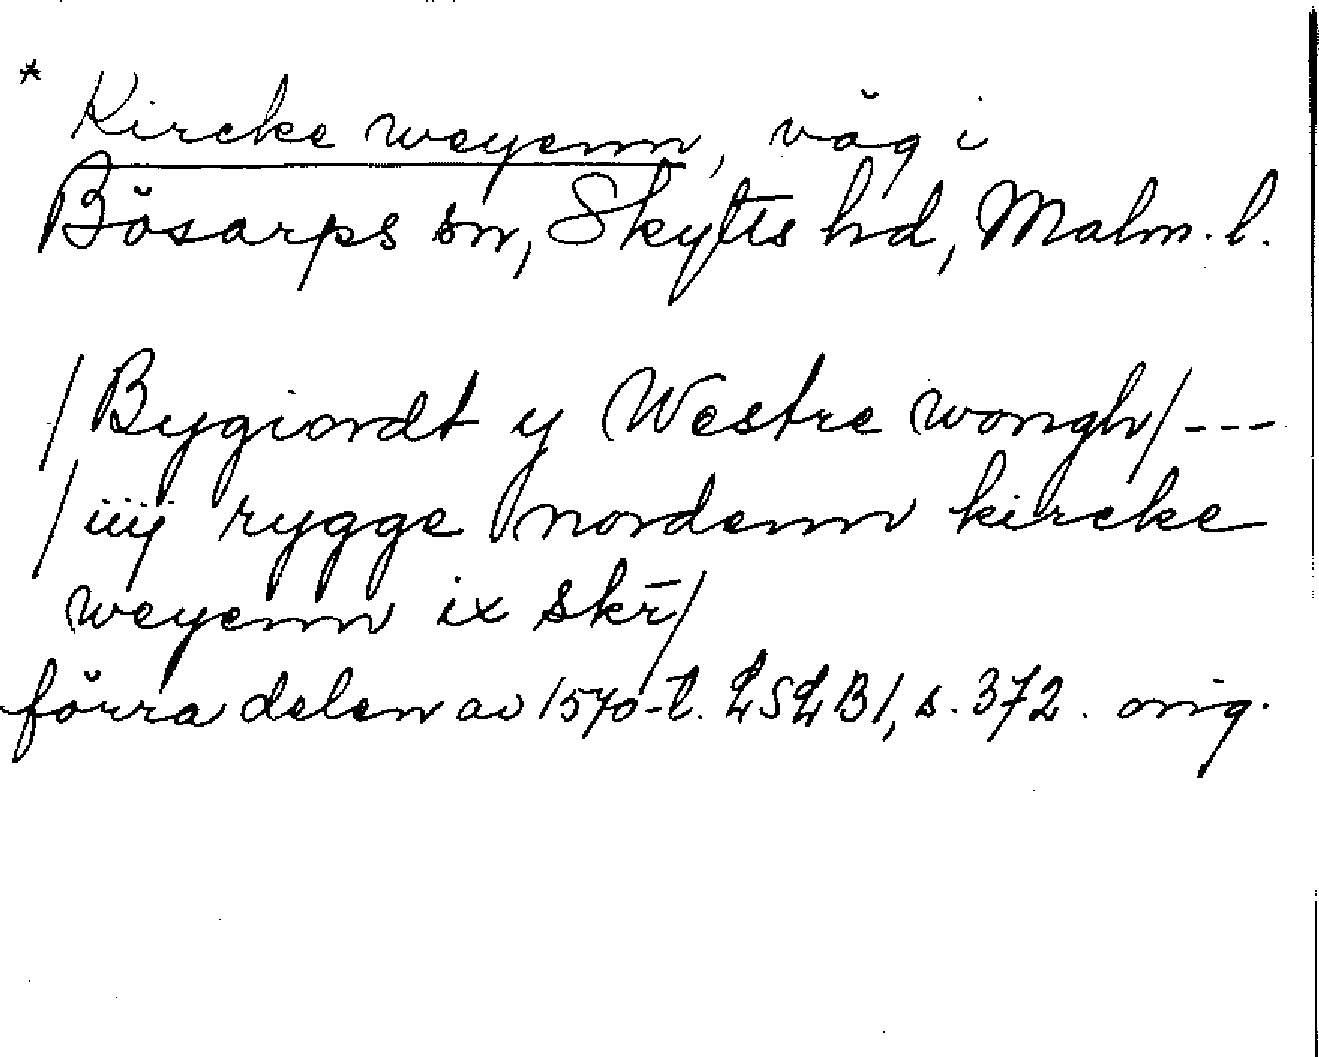 * Kircke weyenn, väg i
Bösarps sn, Skytts hd, Malm. l.
/Bygiordt y Westre wongh/ ---
/iiij rygge nordenn kircke
weyenn ix skr̄/
förra delen av 1570-t. LSLB1, s. 372. orig.